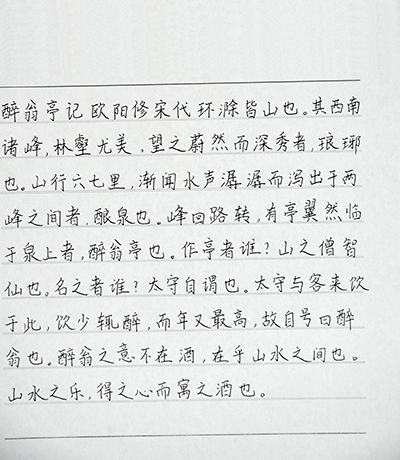 醉翁亭记 欧阳修宋代 环滁皆山也。其西南
诸峰,林壑尤美,望之蔚然而深秀者,琅琊
也。山行六七里,渐闻水声潺潺而泻出于两
峰之间者,酿泉也。峰回路转,有亭翼然临
于泉上者,醉翁亭也。作亭者谁?山之僧智
仙也。名之者谁?太守自谓也。太守与客来饮
于此,饮少辄醉,而年又最高,故自号曰醉
翁也。醉翁之意不在酒,在乎山水之间也。
山水之乐,得之心而寓之酒也。